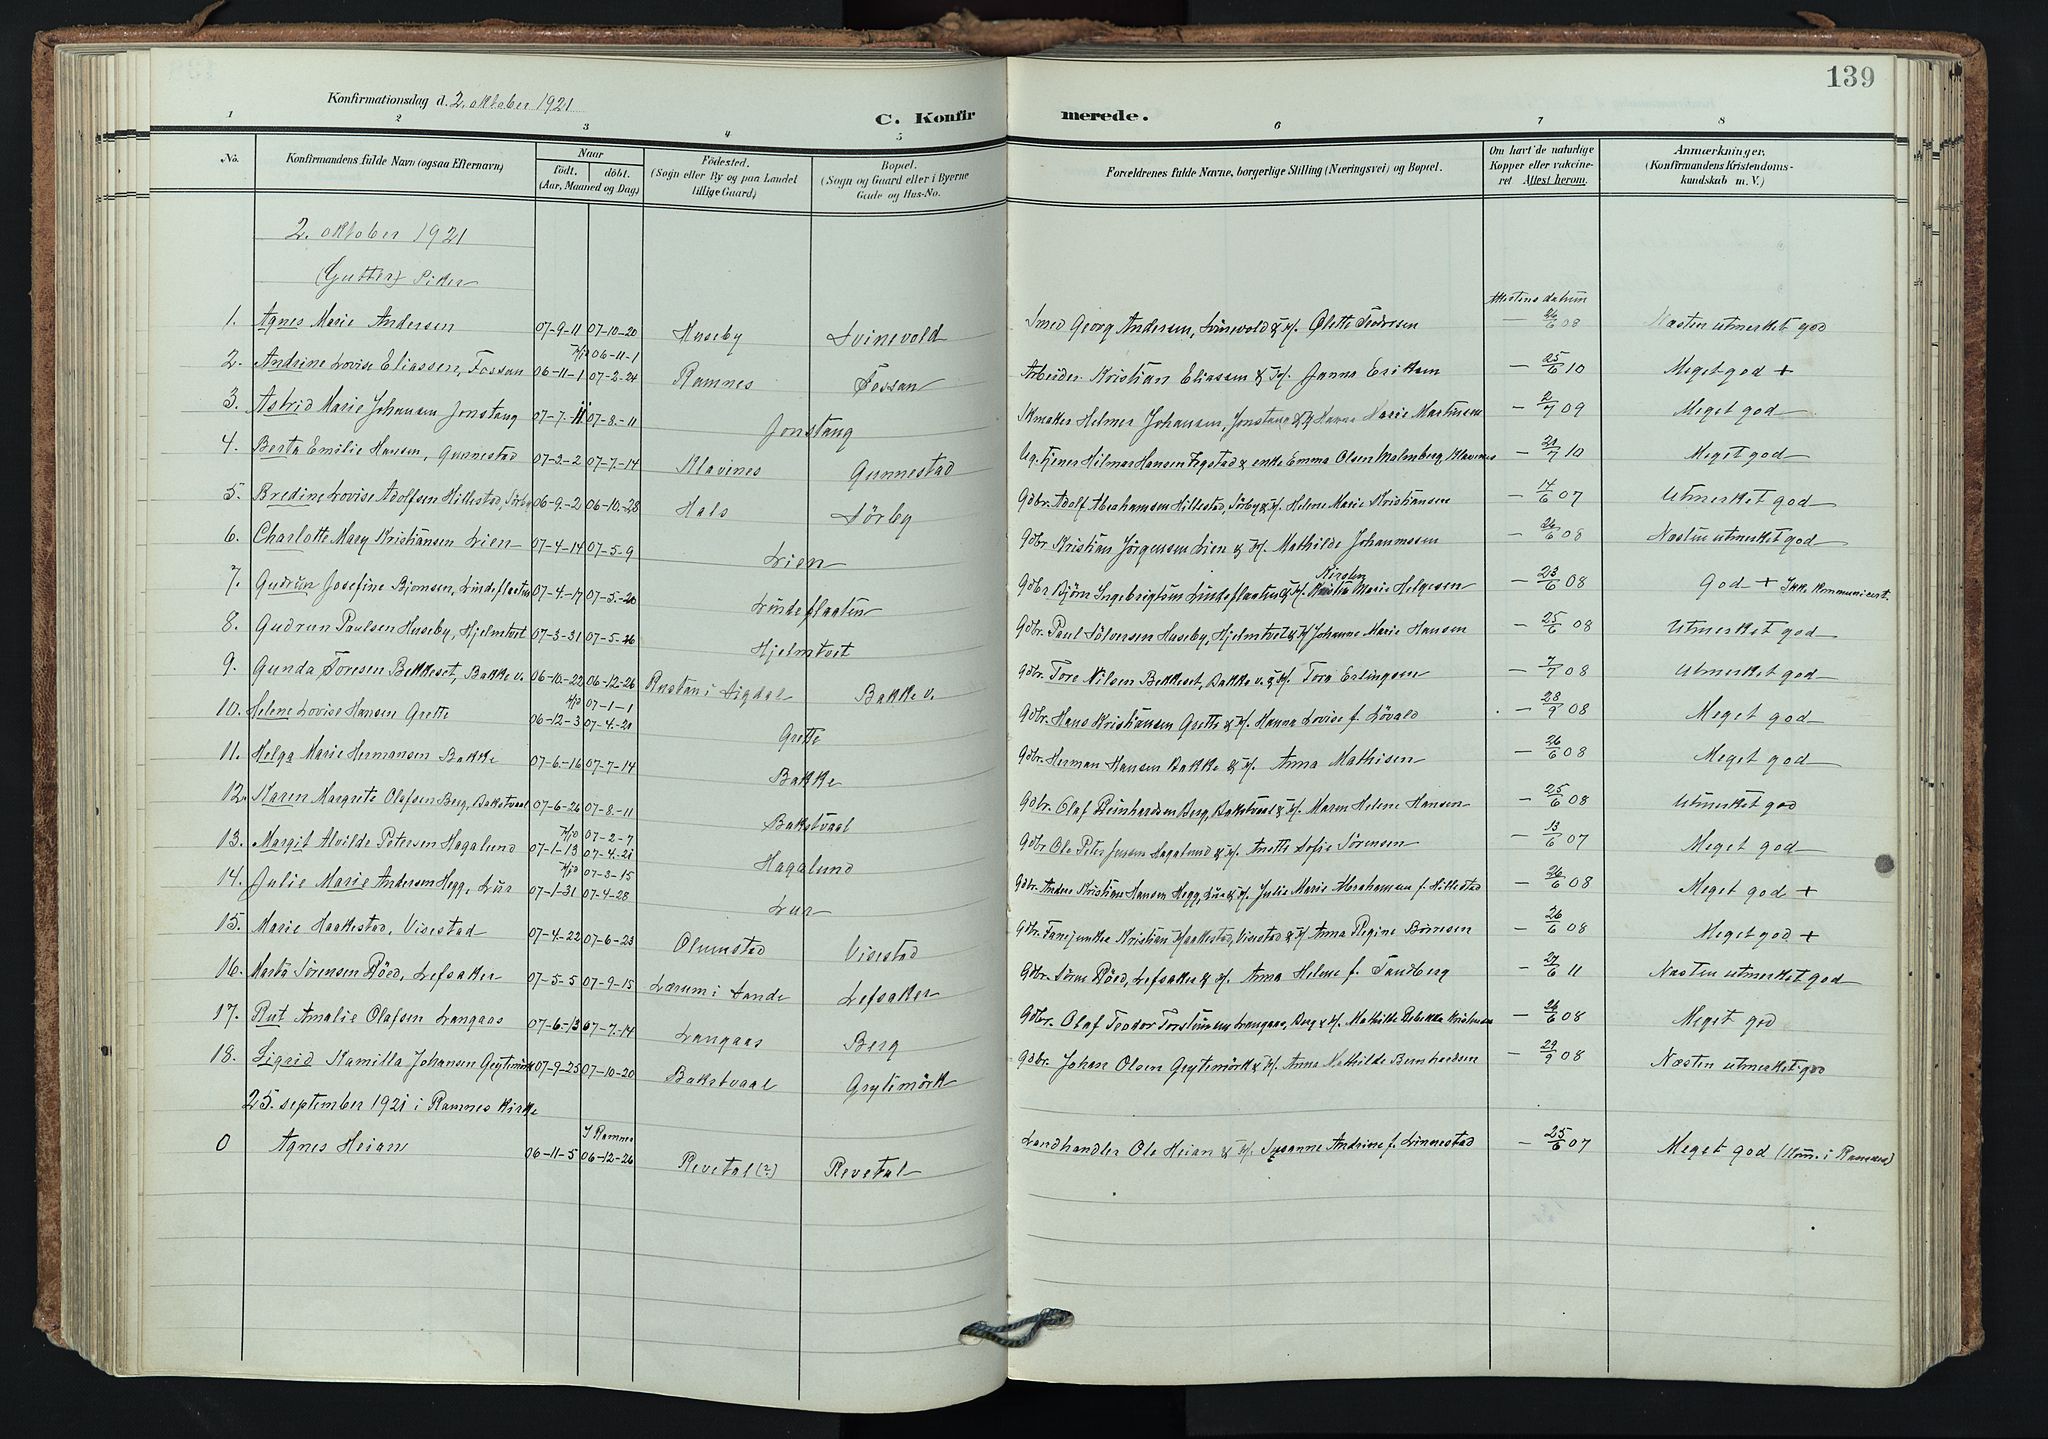 139
Konfirmationsdag d. 2. oktober 1921
C. Konfirmerede.
1 2 3 4 5 6 7 8
No. Konfirmandens fulde Navn (ogsaa Efternavn) Naar født. døbt. (Aar, Maaned og Dag) Fødested. (Sogn eller By og paa Landet tillige Gaard) Bopæl. (Sogn og Gaard eller i Byerne Gade og Hus-No. Forældrenes fulde Navne, borgerlige Stilling (Næringsvei) og Bopæl. Om havt de naturlige Kopper eller vaccineret Attest herom. Anmærkninger. (Konfirmandens Kristendomskundskab m. V.)
2. oktober 1921
(Gutter) Piker
Attestens datum
1. Agnes Marie Andersen 07-9-11 07-10-20 Huseby Svinevold Smed Georg Andersen, Svinevold & H. Olette — 26/6 08 Næsten utmerket god
H/D 06-11-1
2. Andrine Lovise Eliassen, Fossan 06-11-1 07-2-24 Ramnes Fossan Arbeider Kristian Eliassen & H. Janna Eriksen — 25/6 10 Meget god +
3. Astrid Marie Johansen Jonstang 07-7-11 07-8-11 Jonstang Skmaker Helmer Johansen, Jonstang & H. Marie Martinsen — 2/7 09 Meget god
4. Berta Emilie Hansen, Gunnestad 07-3-2 07-7-14 Klavenes Gunnestad Ug. tjener Hilmar Hansen & enke Emma Olsen Malmberg, Klavenes — 21/7 10 Meget god
5. Bredine Lovise Adolfsen Hillestad, Sörby 06-9-2 06-10-28 Hals Sörby Gdbr. Adolf Abrahamsen Hillestad, Sörby & H. Helene Marie Kristiansen — 14/6 07 Utmerket god
6. Charlotte Mary Kristiansen Lien 07-4-14 07-5-9 Lien Gdbr. Kristian Jörgensen Lien & H. Mathilde Johannessen — 26/6 08 Næsten utmerket god
7. Gudrun Josefine Bjørnsen, Lindeflaaten 07-4-17 07-5-20 Lindeflaaten Gdbr. Björn Ingebrigtsen Lindeflaaten & H. Kirsten Marie Helgesen — 23/6 08 God + Ikke kommunicert.
8. Gudrun Paulsen Huseby, Hjelmtvet 07-3-31 07-5-26 Hjelmtvet Gdbr. Paul Sölvensen Huseby, Hjelmtvet & H. Johanne Marie Hansen — 25/6 08 Utmerket god
9. Gunda Toresen Bekkeset, Bakke v. 06-10-22 06-12-26 Rustan i Sigdal Bakke v. Gdbr. Tore Nilsen Bekkeset, Bakke v. & H. Tora Erlingsen — 7/7 08 Utmerket god
H/D 07-1-1
10. Helene Lovise Hansen Grette 06-12-3 07-4-21 Grette Gdbr. Hans Kristiansen Grette & H. Hanna Lovise f. Lövald — 28/9 08 Meget god
11. Helga Marie Hermansen Bakke 07-6-16 07-7-14 Bakke Gdbr. Herman Hansen Bakke & H. Anna Mathisen — 26/6 08 Meget god
12. Karen Margrete Olafsen Berg, Bakstvaal 07-6-26 07-8-11 Bakstvaal Gdbr. Olaf Reinhardsen Berg, Bakstvaal & H. Maren Helene Hansen — 25/6 08 Utmerket god
H/D 07-2-7
13. Margit Alvilde Petersen Hagalund 07-1-13 07-4-21 Hagalund Gdbr. Ole Peter Jensen Hagalund & H. Anette Sofie Sörensen — 13/6 07 Meget god
H/D 07-3-15
14. Julie Marie Andersen Hegg, Lur 07-1-31 07-4-28 Lur Gdbr. Anders Kristian Hansen Hegg, Lur & H. Julie Marie Abrahamsen f. Hillestad — 26/6 08 Meget god +
15. Marie Haakestad, Visestad 07-4-22 07-6-23 Olumstad Visestad Gdbr. Fanejunker Kristian Haakestad, Visestad & H. Anna Regine — 26/6 08 Meget god +
16. Marta Sørensen Röed, Lefsaker 07-5-5 07-9-15 Lærum i Sande Lefsaker Gdbr. Sören Röed, Lefsaker & H. Anna Helene f. Sandberg — 27/6 11 Næsten utmerket god
17. Rut Amalie Olafsen Langaas 07-6-13 07-7-14 Langaas Berg Gdbr. Olaf Teodor Torstensen Langaas, Berg & H. Mathilde Rebekka Kristensen — 26/6 08 Meget god
18. Sigrid Kamilla Johansen Grytemörk 07-9-25 07-10-20 Bakstvaal Grytemörk Gdbr. Johan Olsen Grytemörk & H. Anna Mathilde Bernhardsen — 29/9 08 Næsten utmerket god
25. september 1921 i Ramnes kirke
I Ramnes
0 Agnes Heian 06-11-5 06-12-26 Revetal (?) Revetal Landhandler Ole Heian & H. Susanne Andrine f. Linnestad — 25/6 07 Meget god (Kom. i Ramnes)